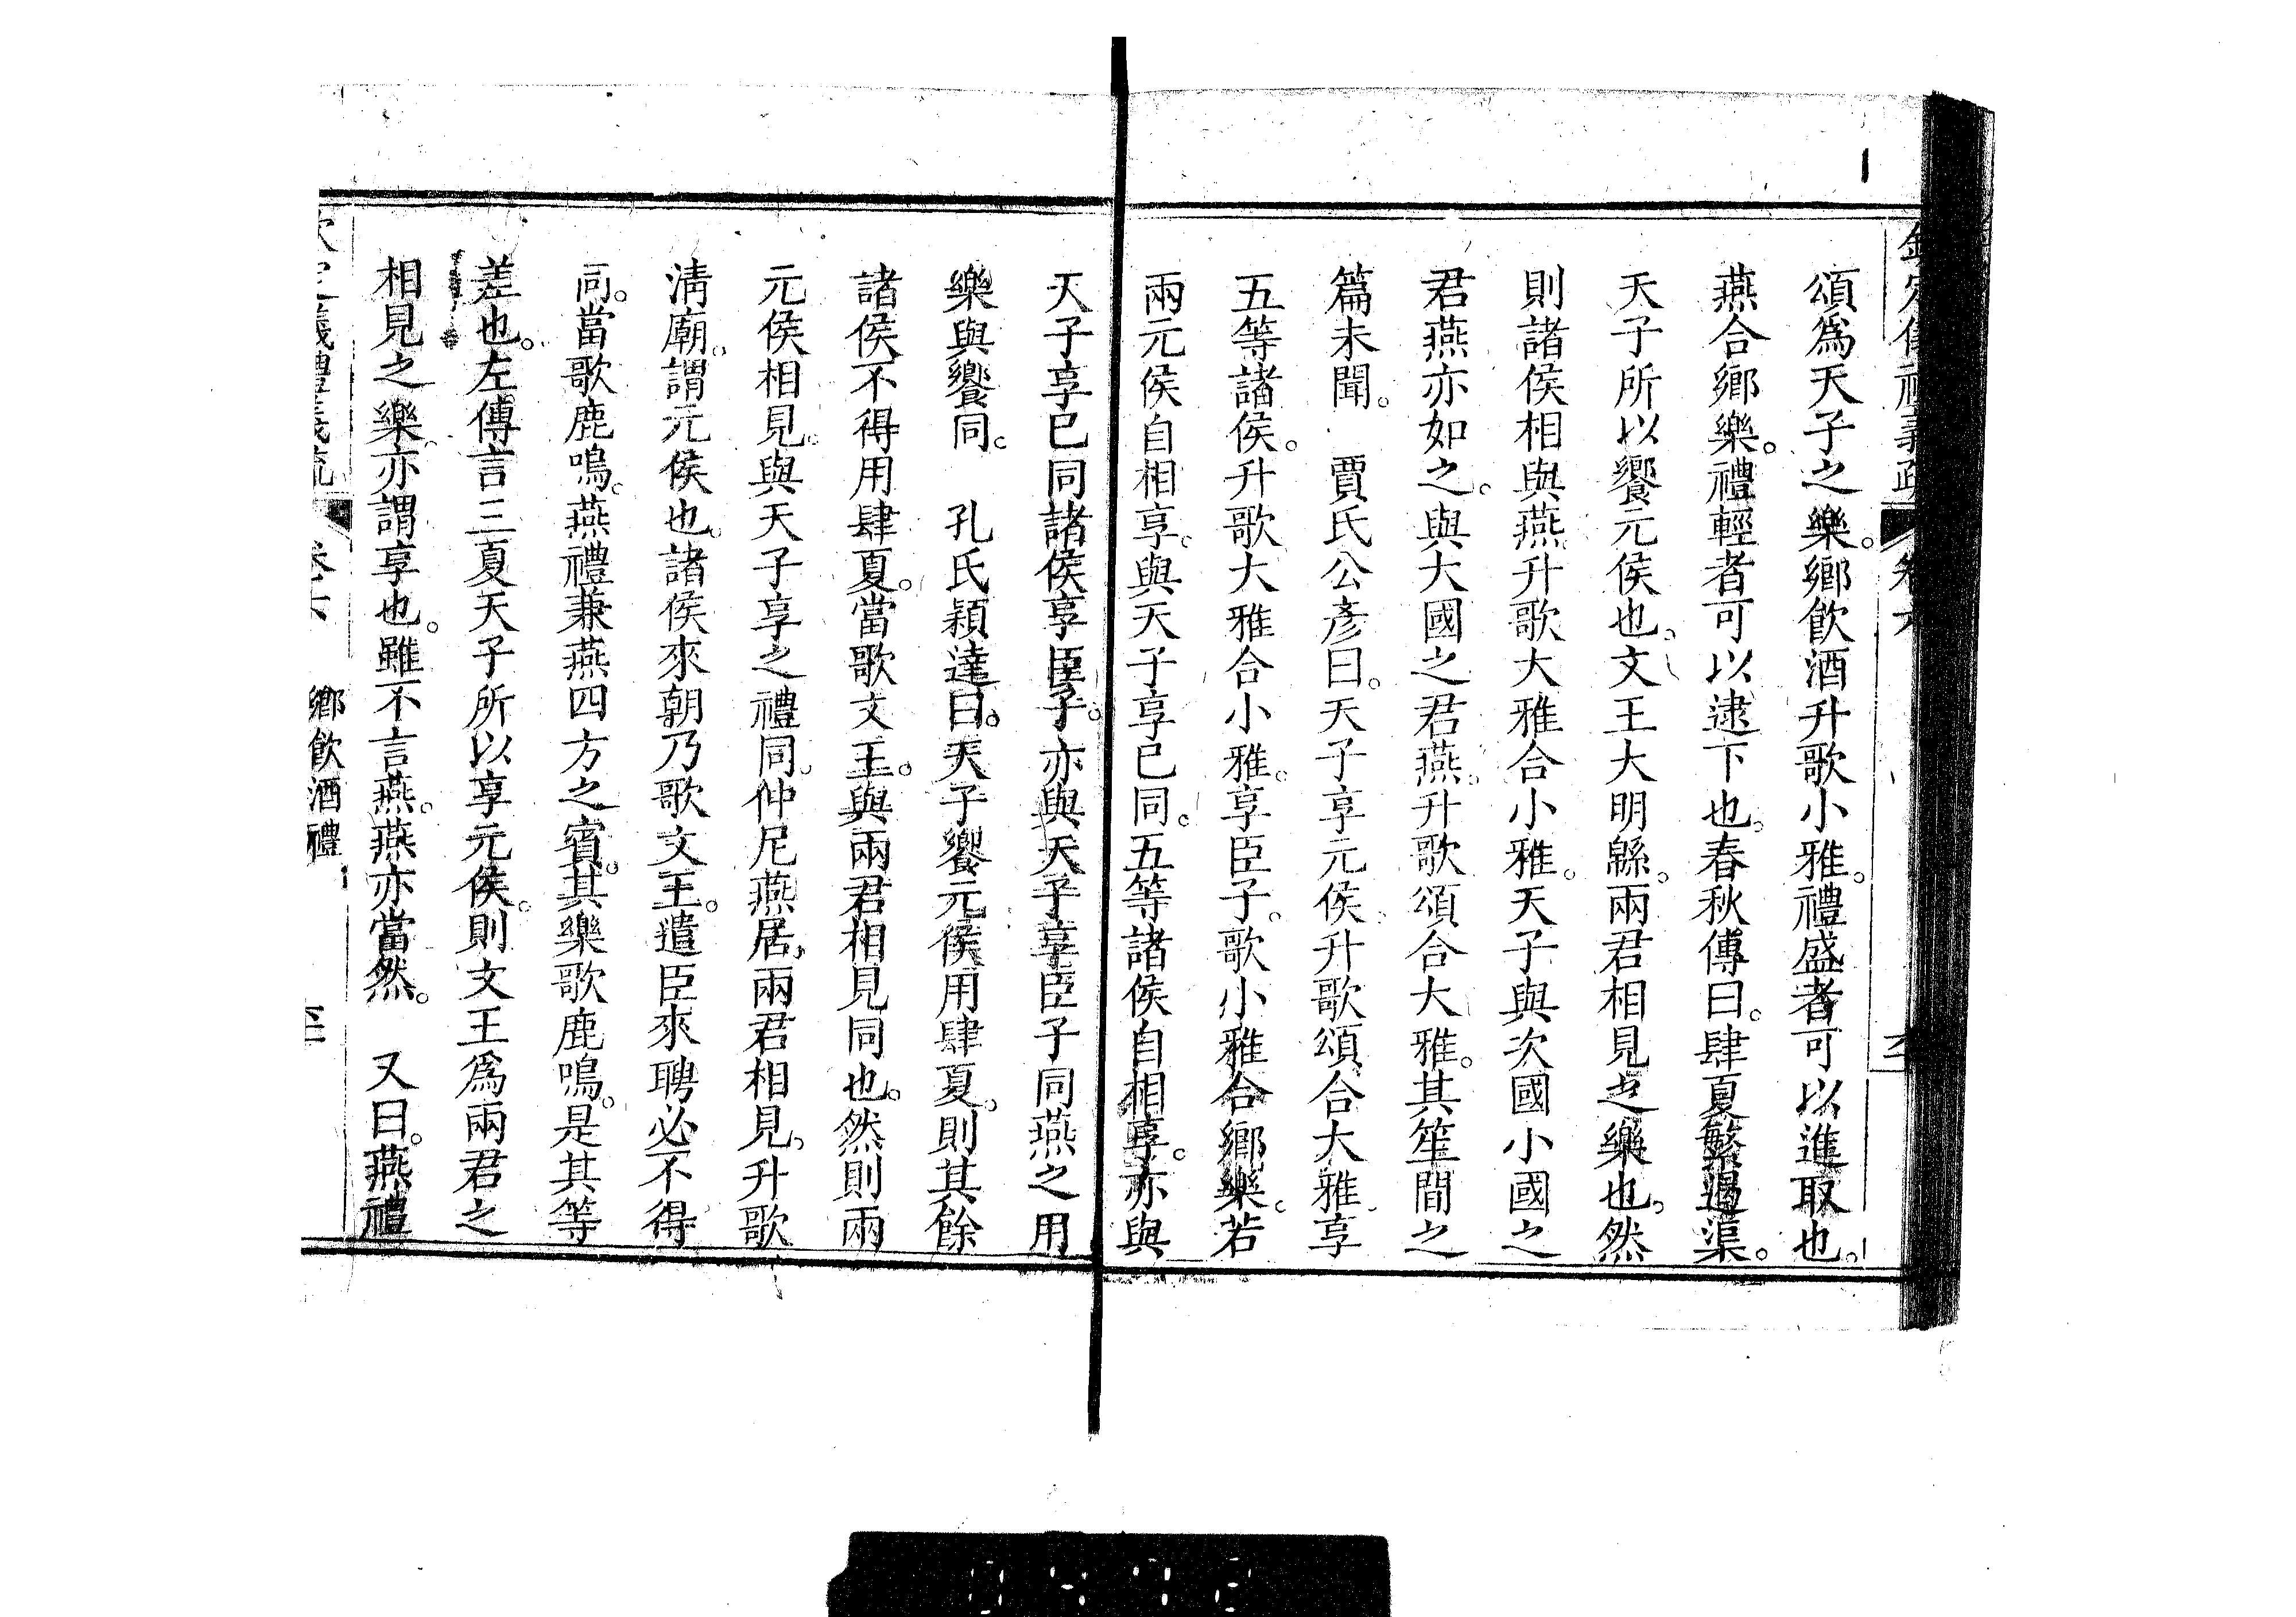 頌爲天子之樂。鄉飲酒升歌小雅。禮盛者可以進取也。
燕合鄉樂。禮輕者可以逮下也。春秋傳曰。肆夏繁遏渠。
天子所以饗元侯也。文王大明緜。兩君相見之樂也。然
則諸侯相與燕。升歌大雅合小雅。天子與次國小國之
君燕亦如之。與大國之君燕。升歌頌合大雅。其笙間之
篇未聞。　賈氏公彥曰。天子享元侯。升歌頌合大雅。享
五等諸侯。升歌大雅合小雅。享臣子。歌小雅合鄉樂。若
兩元侯自相享。與天子享已同。五等諸侯自相享。亦與
天子享已同諸侯享臣子。亦與天子享臣子同燕之用
樂與饗同。　孔氏穎達曰。天子饗元侯用肆夏。則其餘
諸侯不得用肆夏。當歌文王。與兩君相見同也。然則兩
元侯相見。與天子享之禮同。仲尼燕居。兩君相見。升歌
淸廟。謂元侯也。諸侯來朝乃歌文王。遣臣來聘必不得
同。當歌鹿鳴。燕禮兼燕四方之賓。其樂歌鹿鳴。是其等
差也。左傳言三夏天子所以享元侯。則文王爲兩君之
相見之樂。亦謂享也。雖不言燕。燕亦當然。　又曰。燕禮
鄉飲酒禮